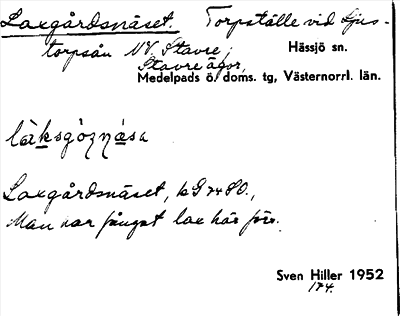 Laxgårdsnäset. Torpställe vid Ljus-
torpsån NV. Stavre, Hässjö sn.
Stavre ägor,
Medelpads ö. doms. tg, Västernorrl. län.
làksgòzṇása
Laxgårdsnäset, kG 7480.,
Man har fångat lax här förr.
Sven Hiller 1952
174.